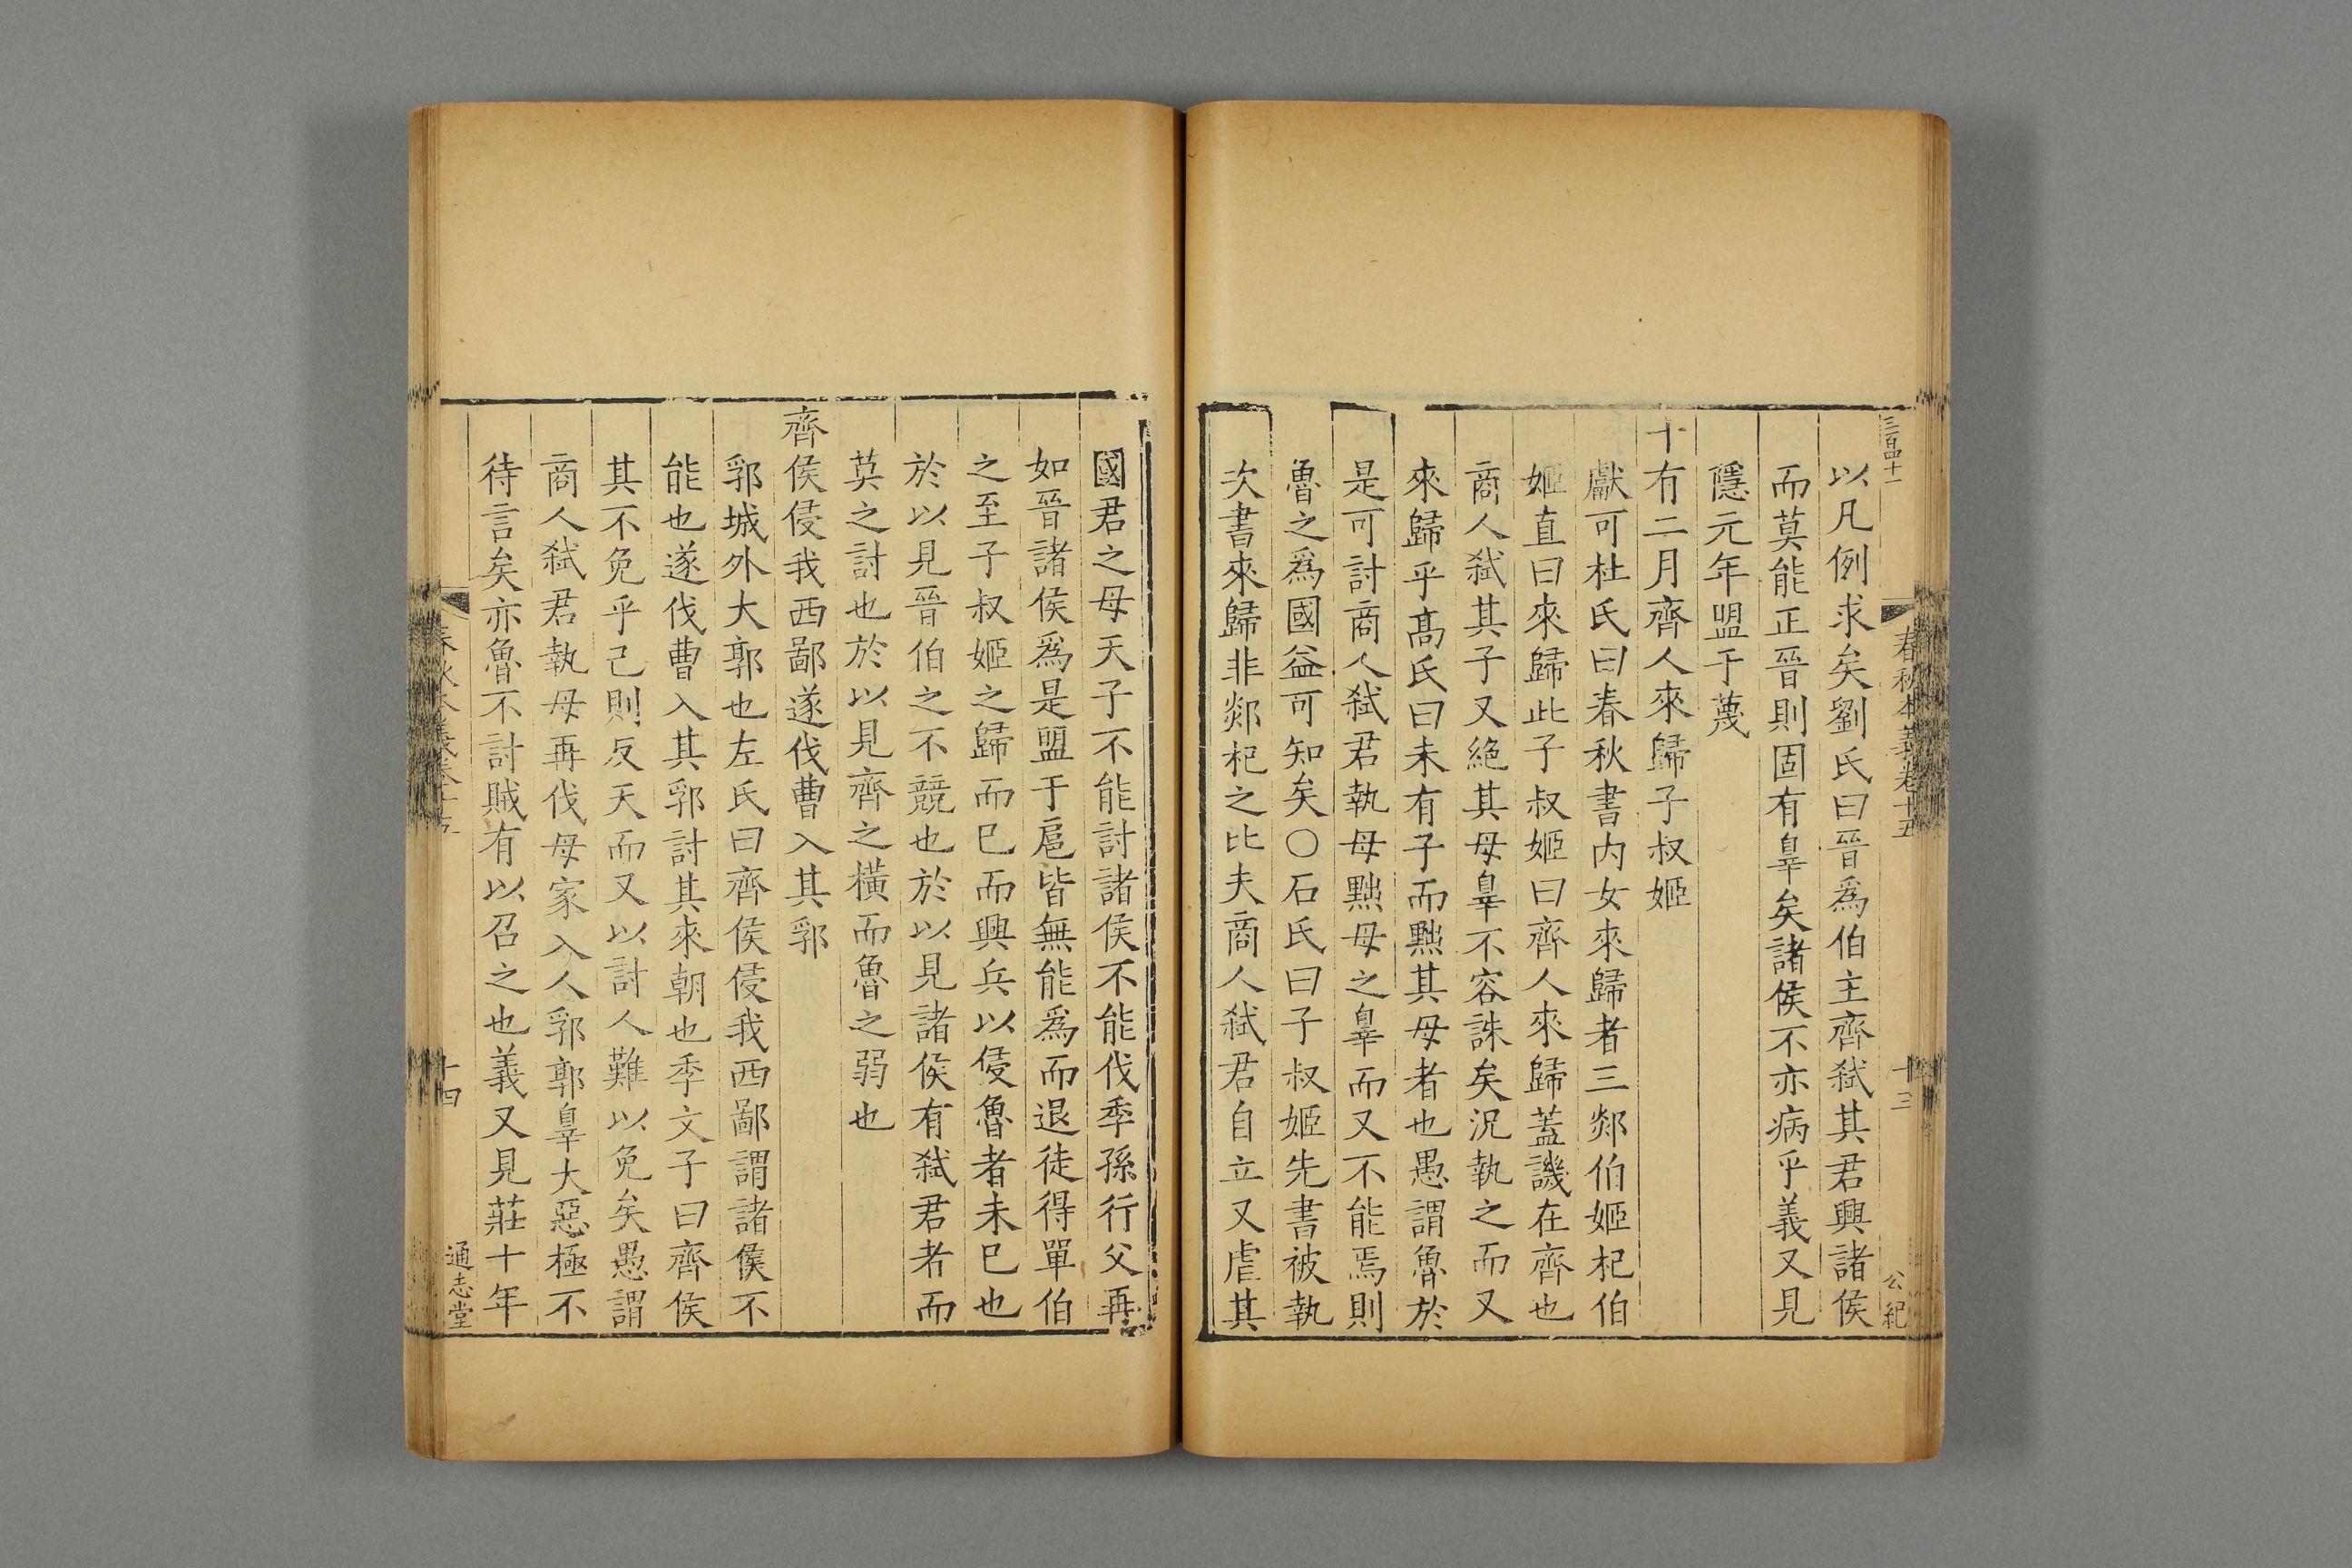 三百四十一
春秋本義卷十五
十三
公紀
以凡例求矣劉氏曰晉爲伯主齊弑其君興諸侯
而莫能正晉則固有辠矣諸侯不亦病乎義又見
隱元年盟于蔑
十有二月齊人來歸子叔姬
獻可杜氏曰春秋書内女來歸者三郯伯姬杞伯
姬直曰來歸此子叔姬曰齊人來歸蓋譏在齊也
商人弑其子又絶其母辠不容誅矣況執之而又
來歸乎髙氏曰未有子而黜其母者也愚謂魯於
是可討商人弑君執母黜母之辠而又不能焉則
魯之爲國益可知矣〇石氏曰子叔姬先書被執
次書來歸非郯杞之比夫商人弑君自立又虐其
國君之母天子不能討諸侯不能伐季孫行父再
如晉諸侯爲是盟于扈皆無能爲而退徒得單伯
之至子叔姬之歸而巳而興兵以侵魯者未巳也
於以見晉伯之不競也於以見諸侯有弑君者而
莫之討也於以見齊之橫而魯之弱也
齊侯侵我西鄙遂伐曹入其郛
郛城外大郭也左氏曰齊侯侵我西鄙謂諸侯不
能也遂伐曹入其郛討其來朝也季文子曰齊侯
其不免乎己則反天而又以討人難以免矣愚謂
商人弑君執母再伐母家入人郛郭辠大惡極不
待言矣亦魯不討賊有以召之也義又見莊十年
春秋本義卷十五
十四
通志堂